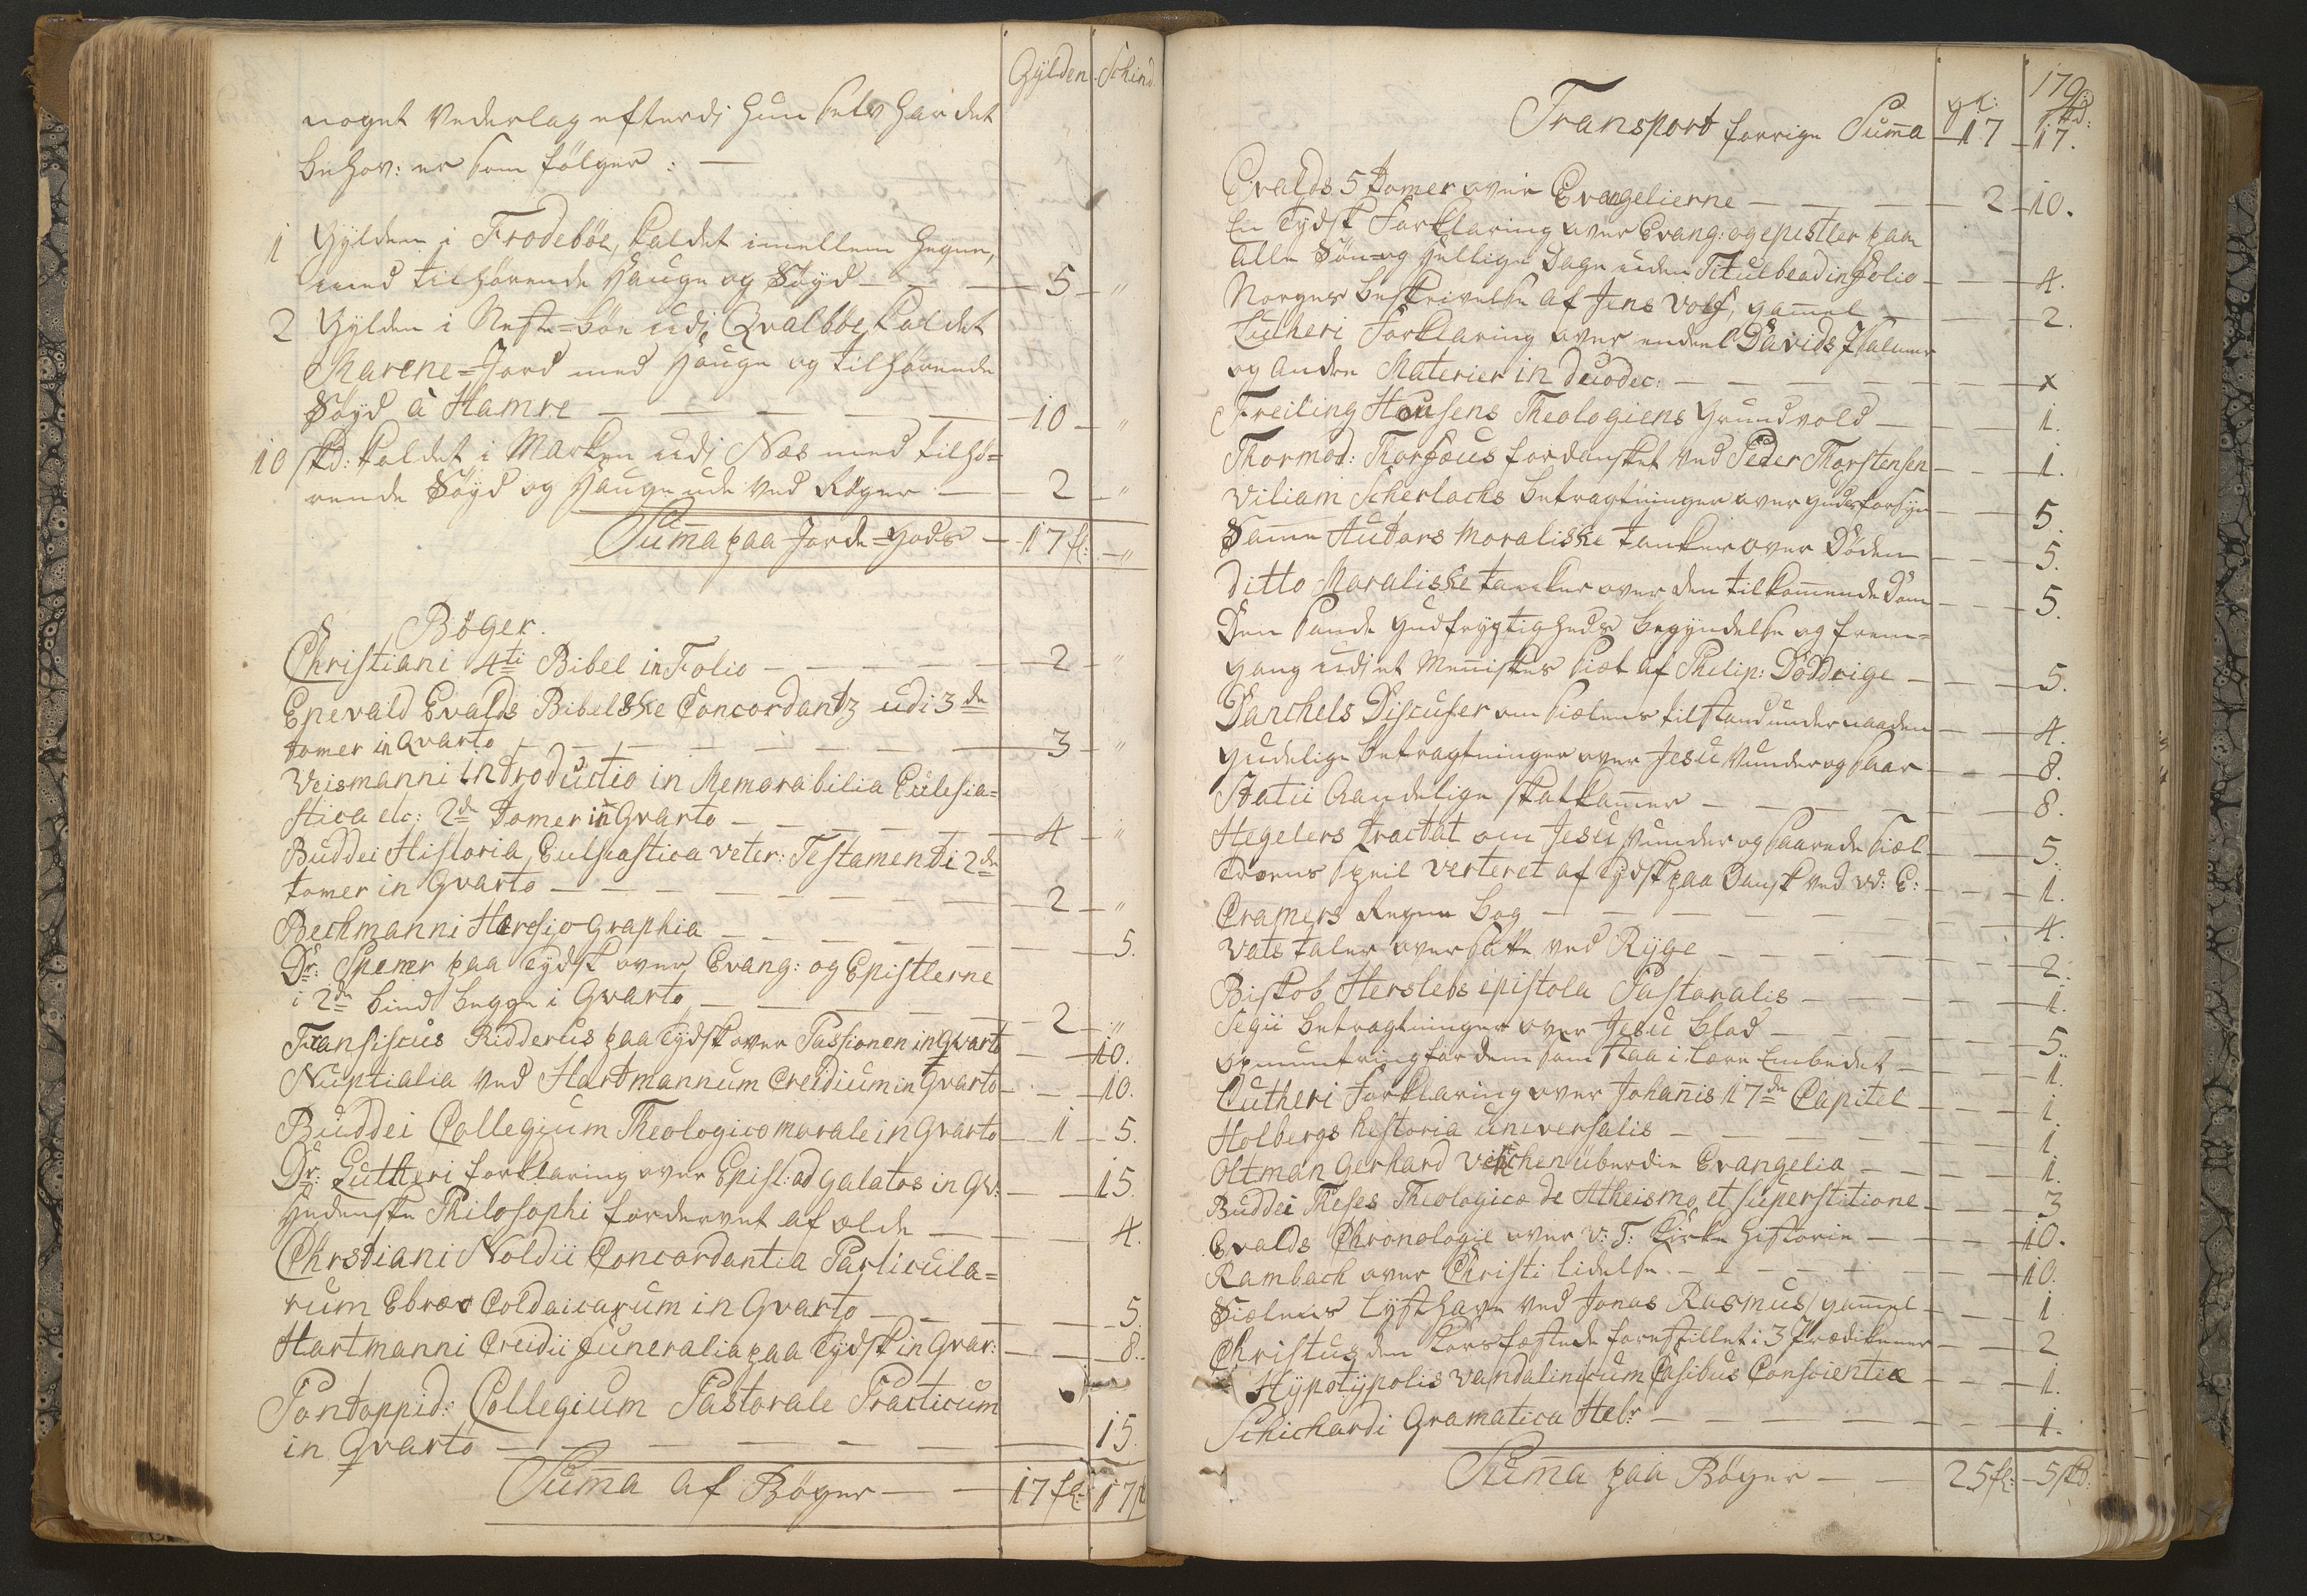 Gylden Schind
noget Vederlag efterdi hun selv har det
behov: er som følger: —
1 Gylden i Frodebøe, kaldet imellem Hegne,
med tilhørende Hauge og Søyd — 5 — "
2 Gylden i Neste-bøe udi Qvalbøe kaldet
Marene-Jord med Hauge og tilhørende
Søyd â Hamre — 10 — "
10 skd: kaldet i Marken udi Næs med tilhø=
rende Søyd og Hauge ude ved — 2 — "
Sum̄a paa Jorde-Gods — 17 fl: — "
Bøger.
Christiani 4ti Bibel in Folio — 2 — "
Enevald Evalds Bibelske Concordantz udi 3de
tomer in Qvarto — 3 — "
Veismanni introductio in Memorabilia Eulesia=
stica etc: 2de tomer in Qvarto — 4 — "
Buddei Historia Eulsiastica veter: Testamenti 2de
tomer in Qvarto — 2 — "
Bechmanni Hæresio-Graphia — 5.
Dr: Spener paa Tydsk over Evang: og Epistlerne
i 2de bind begge i Qvarto — 2 — "
Fransiscus Ridderus paa Tydsk over Passionen in Qvarto — 10.
Nuptialia ved Hartmannum Creidium in Qvarto — 10.
Buddei Collegium Theologico morale in Qvarto — 1 — 5.
Dr: Lutheri forklaring over Epist: ad Galatos in Qv: — 15.
Hedenske Philosophi fordervet af ælde — 4.
Chrstiani Noldii Concordantia Particula=
rum Ebræo Coldaicarum in Qvarto — 5.
Hartmanni Creidii Funeralia paa Tydsk in Qvar: — 8.
Pontoppid: Collegium Pastorale Practicum
in Qvarto — 15.
Sum̄a af Bøger — 17 fl: 17 sk
179.
gl: skd:
Transport forrige Sum̄a — 17 — 17.
Evalds 5 tomer over Evangelierne — 2 — 10.
En Tydsk Forklaring over Evang: og epistler paa
alle Søn- og Hellige Dage uden Titulblad in folio — 4.
Norges beskrivelse af Jens Volf, gam̄el — 2.
Lutheri Forklaring over endeel Davids Psalmer
og andre Materier in Duodec: — x
Freiling Hausens Theologiens Grundvold — 1.
Thormod: Torfæus fordansket ved Peder Thorstensen — 1.
Viliam Scherlochs betragtninger over Guds forsyn — 5.
Samme Autors Moraliske tanker over Døden — 5.
Ditto Moraliske tanker over den tilkom̄ende Dom — 5.
Den sande Gudfrygtigheds begyndelse og frem=
gang udi et Men̄iskes siæl af Philip: Doddrige — 5.
Danchels Discuser om siælens tilstand under naaden — 4.
Gudelige betragtninger over Jesu Vunder og saar — 8.
Statii Aandelige skatkam̄er — 8.
Hegelers tractat om Jesu Vunder og saarede siæl — 5.
speil verteret af Tydsk paa Dansk ved vd: E: — 1.
Cramers Regne bog — 4.
Vats taler oversatte ved Ryge — 2.
Biskob Herslebs epistola Pastoralis — 1.
Segii betragtninger over Jesu blod — 5.
opmuntring for dem som staa i lære Embedet — 1.
Lutheri Forklaring over Johan̄is 17de Capitel — 1
Holbergs historia universalis — 1.
Oltman Gerhard Veichen uber die Evangelia — 1.
Buddei Theses Theologicæ de Atheismo et superstitione — 3
Evalds Chronologie over V: T: Kirke historie — 10.
Rambach over Christi lidelse — 10.
Siælens lysthave ved Jonas Rasmus gam̄el — 1
Christus den korsfæstede forestillet i 3 Prædikener — 2
Hypotyposis Vandalini cum Casibus Conscientiæ — 1.
Schichardi Gramatica Hebr — 1.
Sum̄a paa Bøger — 25 fl: — 5 skd: